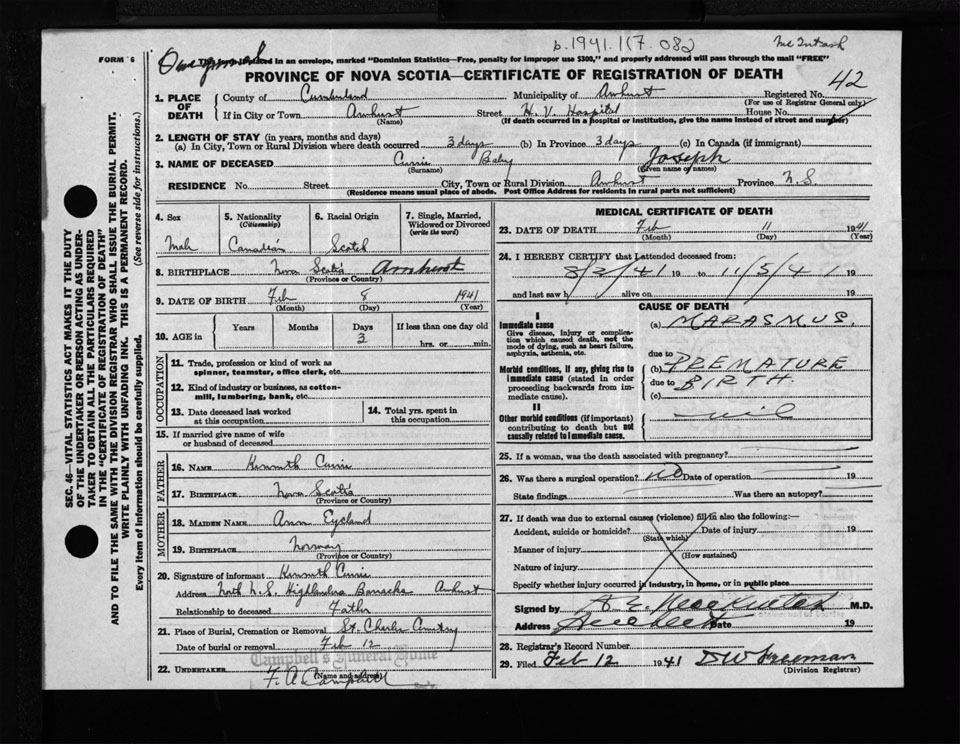 b.1941.117.082
FORM 6
"Dominion Statistics—Free, penalty for improper use $300," and properly addressed will pass through the mail "FREE"
PROVINCE OF NOVA SCOTIA—CERTIFICATE OF REGISTRATION OF DEATH
42
1. PLACE OF DEATH
County of Cumberland Municipality of Amherst Registered No.
(For use of Registrar General only)
If in City or Town Amherst Street H. V. Hospital House No.
(Name) (If death occurred in a hospital or institution, give the name instead of street and number)
2. LENGTH OF STAY (in years, months and days)
(a) In City, Town or Rural Division where death occurred 3 days (b) In Province 3 days (c) In Canada (if immigrant)
3. NAME OF DECEASED Currie Baby Joseph
(Surname) (Given name or names)
RESIDENCE No. Street City, Town or Rural Division Amherst Province N.S.
(Residence means usual place of abode. Post Office Address for residents in rural parts not sufficient)
4. Sex
Male
5. Nationality
(Citizenship)
Canadian
6. Racial Origin
Scotch
7. Single, Married, Widowed or Divorced
(write the word)
8. BIRTHPLACE Nova Scotia Amherst
(Province or Country)
9. DATE OF BIRTH Feb 8 1941
(Month) (Day) (Year)
10. AGE in
Years Months Days If less than one day old
3 hrs. or min.
OCCUPATION
11. Trade, profession or kind of work as
spinner, teamster, office clerk, etc.
12. Kind of industry or business, as cotton-
mill, lumbering, bank, etc.
13. Date deceased last worked
at this occupation
14. Total yrs. spent in
this occupation
15. If married give name of wife
or husband of deceased
FATHER
16. NAME Kenneth Currie
17. BIRTHPLACE Nova Scotia
(Province or Country)
MOTHER
18. MAIDEN NAME Ann
19. BIRTHPLACE Norway
(Province or Country)
20. Signature of informant Kenneth Currie
Address North N.S. Highlanders Barracks Amherst
Relationship to deceased Father
21. Place of Burial, Cremation or Removal St. Charles Cemetery
Date of burial or removal Feb 12
Campbell's Funeral Home
22. UNDERTAKER F. A. Campbell
(Name and address)
MEDICAL CERTIFICATE OF DEATH
23. DATE OF DEATH Feb 11 1941
(Month) (Day) (Year)
24. I HEREBY CERTIFY that I attended deceased from:
8/2/41 19 to 11/5/41 19
and last saw h alive on 19
CAUSE OF DEATH
I
Immediate cause
Give disease, injury or complica-
tion which caused death, not the
mode of dying, such as heart failure,
asphyxia, asthenia, etc.
(a) MARASMUS.
due to
Morbid conditions, if any, giving rise to
immediate cause (stated in order
proceeding backwards from im-
mediate cause).
(b) PREMATURE
due to BIRTH.
(c)
II
Other morbid conditions (if important)
contributing to death but not
causally related to immediate cause.
nil
25. If a woman, was the death associated with pregnancy?
26. Was there a surgical operation? no Date of operation 19
State findings Was there an autopsy?
27. If death was due to external causes (violence) fill in also the following:—
Accident, suicide or homicide? Date of injury 19
(State which)
Manner of injury
(How sustained)
Nature of injury
Specify whether injury occurred in industry, in home, or in public place
Signed by M.D.
Address Date 19
28. Registrar's Record Number
29. Filed Feb 12 1941 D W Freeman
(Division Registrar)
SEC. 46—VITAL STATISTICS ACT MAKES IT THE DUTY
OF THE UNDERTAKER OR PERSON ACTING AS UNDER-
TAKER TO OBTAIN ALL THE PARTICULARS REQUIRED
IN THE "CERTIFICATE OF REGISTRATION OF DEATH"
AND TO FILE THE SAME WITH THE DIVISION REGISTRAR WHO SHALL ISSUE THE BURIAL PERMIT.
WRITE PLAINLY WITH UNFADING INK. THIS IS A PERMANENT RECORD.
Every item of information should be carefully supplied. (See reverse side for instructions.)